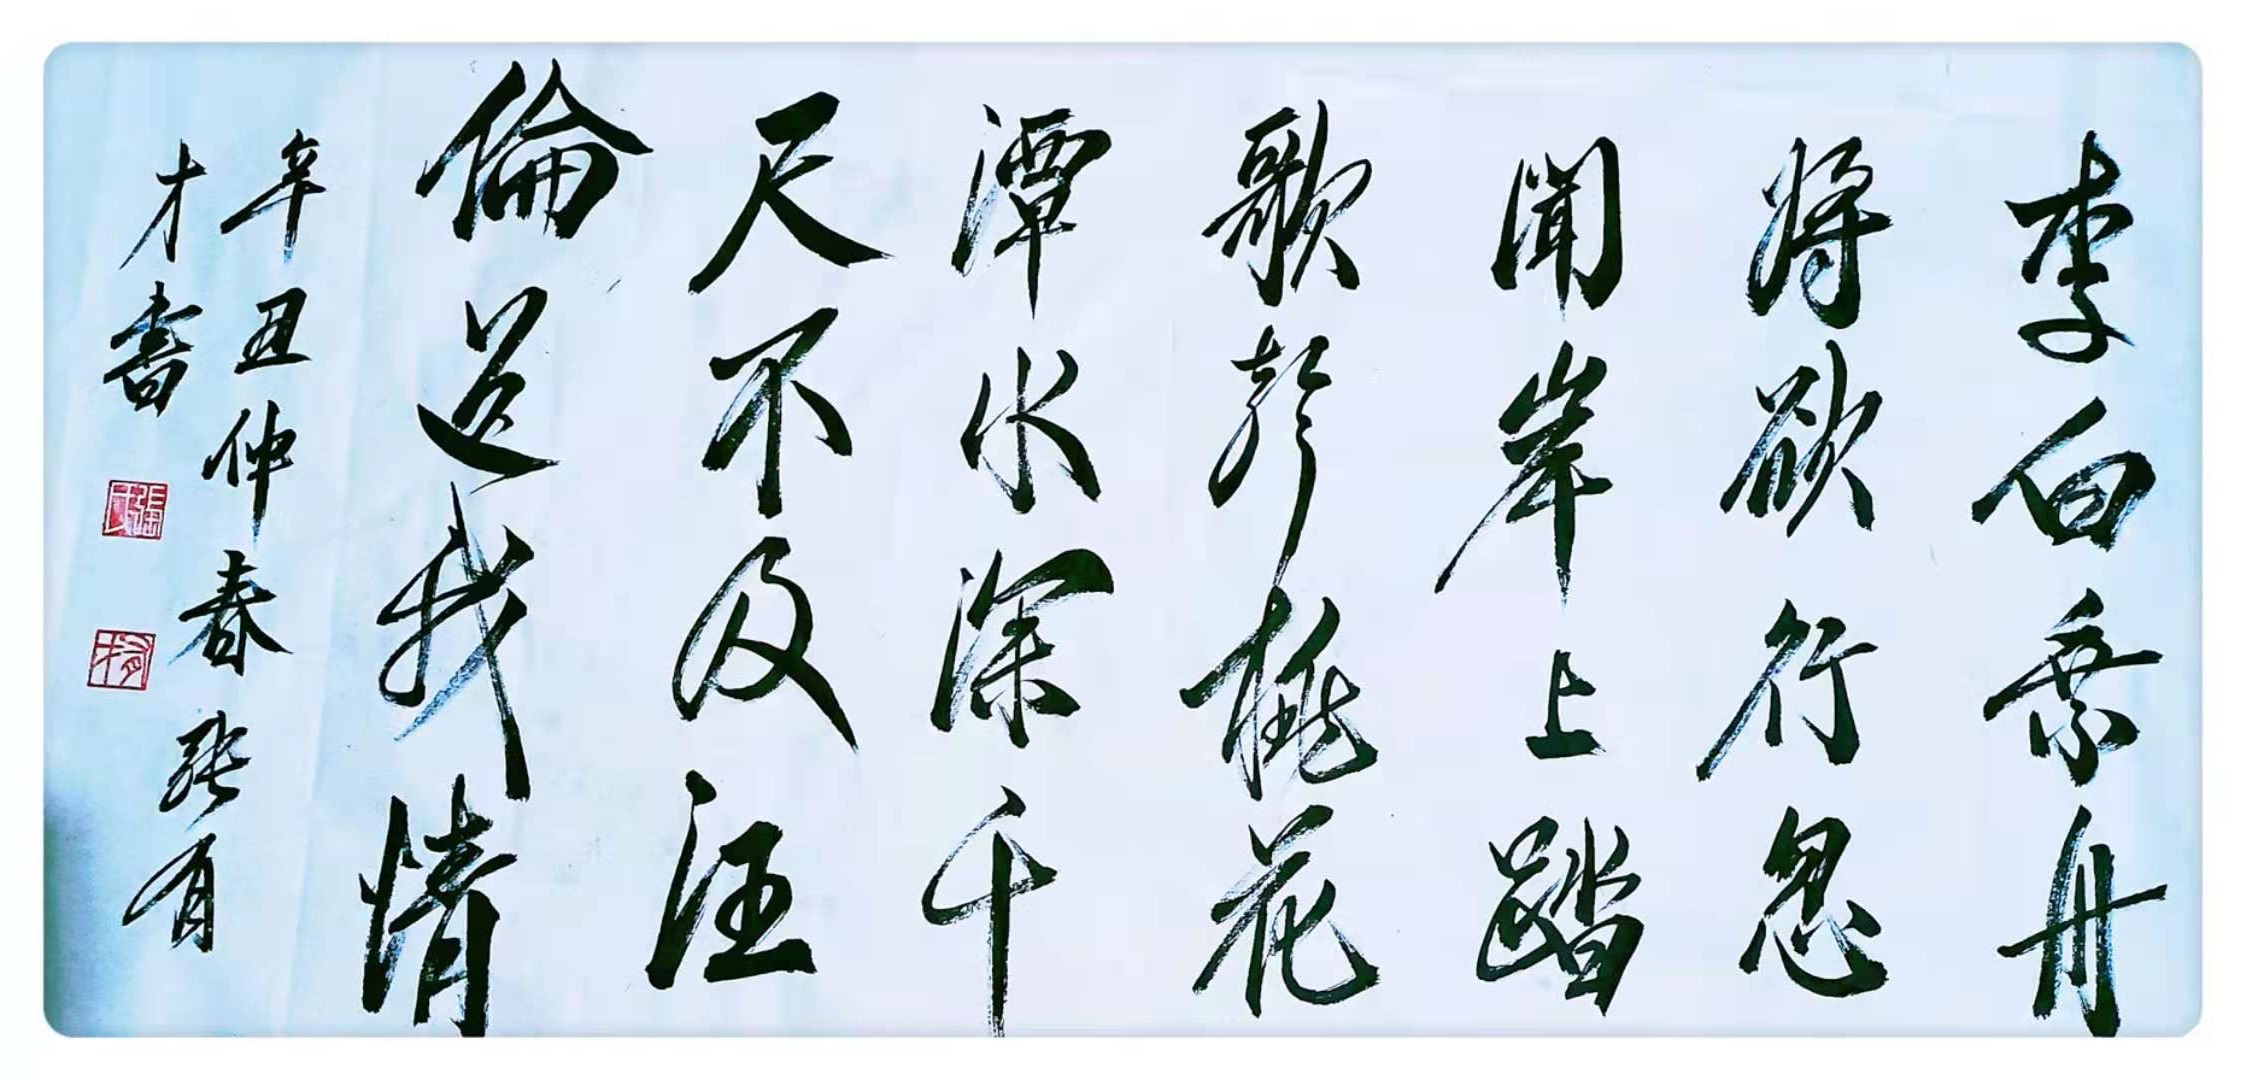 李白乘舟
將欲行忽
聞岸上踏
歌聲桃花
潭水深千
尺不及汪
倫送我情
辛丑仲春張有
才書
張氏
有才